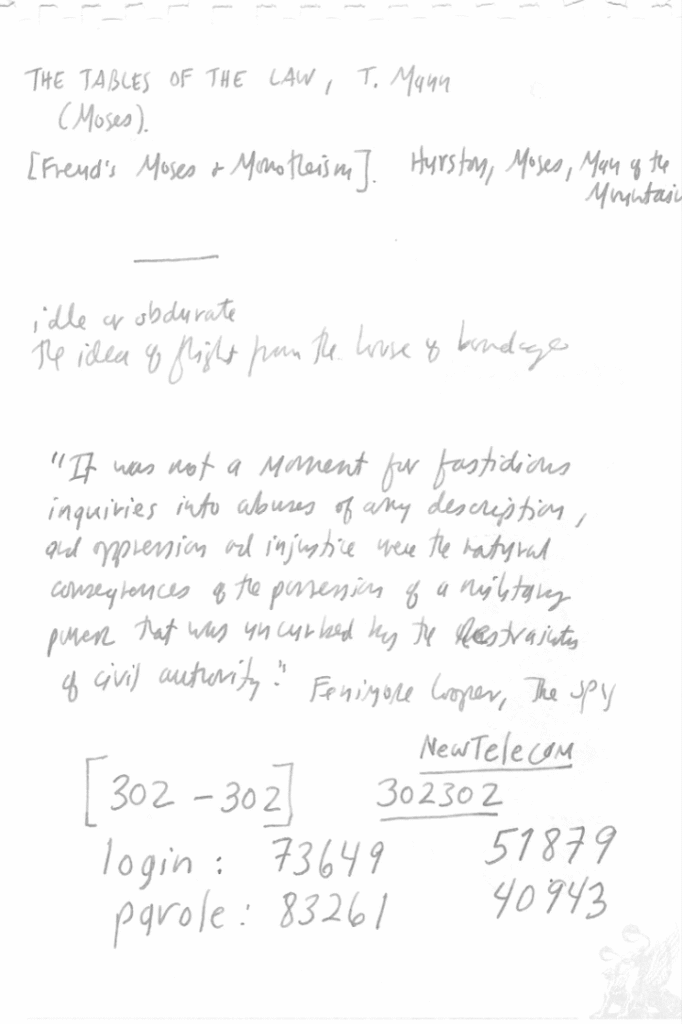 THE TABLES OF THE LAW, T. Mann
(Moses).
[Freud's Moses + Monotheism]. Hurston, Moses, Man of the
Mountain
idle or obdurate
the idea of flight from the house of bondage
"It was not a moment for fastidious
inquiries into abuses of any description,
and oppression and injustice were the natural
consequences of the possession of a military
power that was uncurbed by the restraints
of civil authority." Fenimore Cooper, The SPY
NewTelecom
[302-302] 302302
login: 73649 51879
parole: 83261 40943